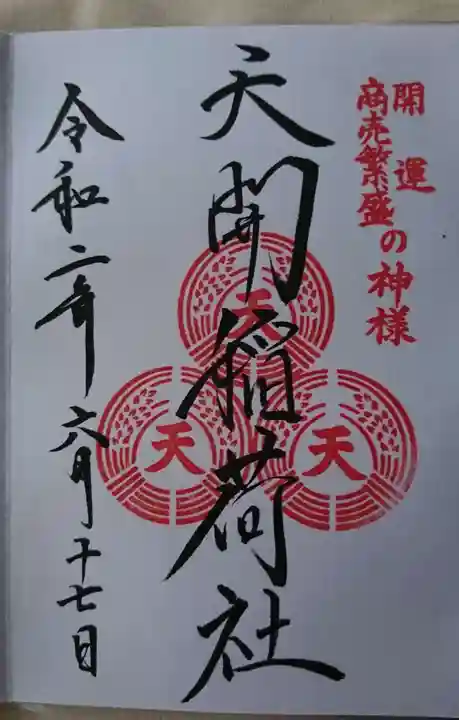 開運
商売繁盛の神様
天開稲荷社
天
天
天
令和二年六月十七日